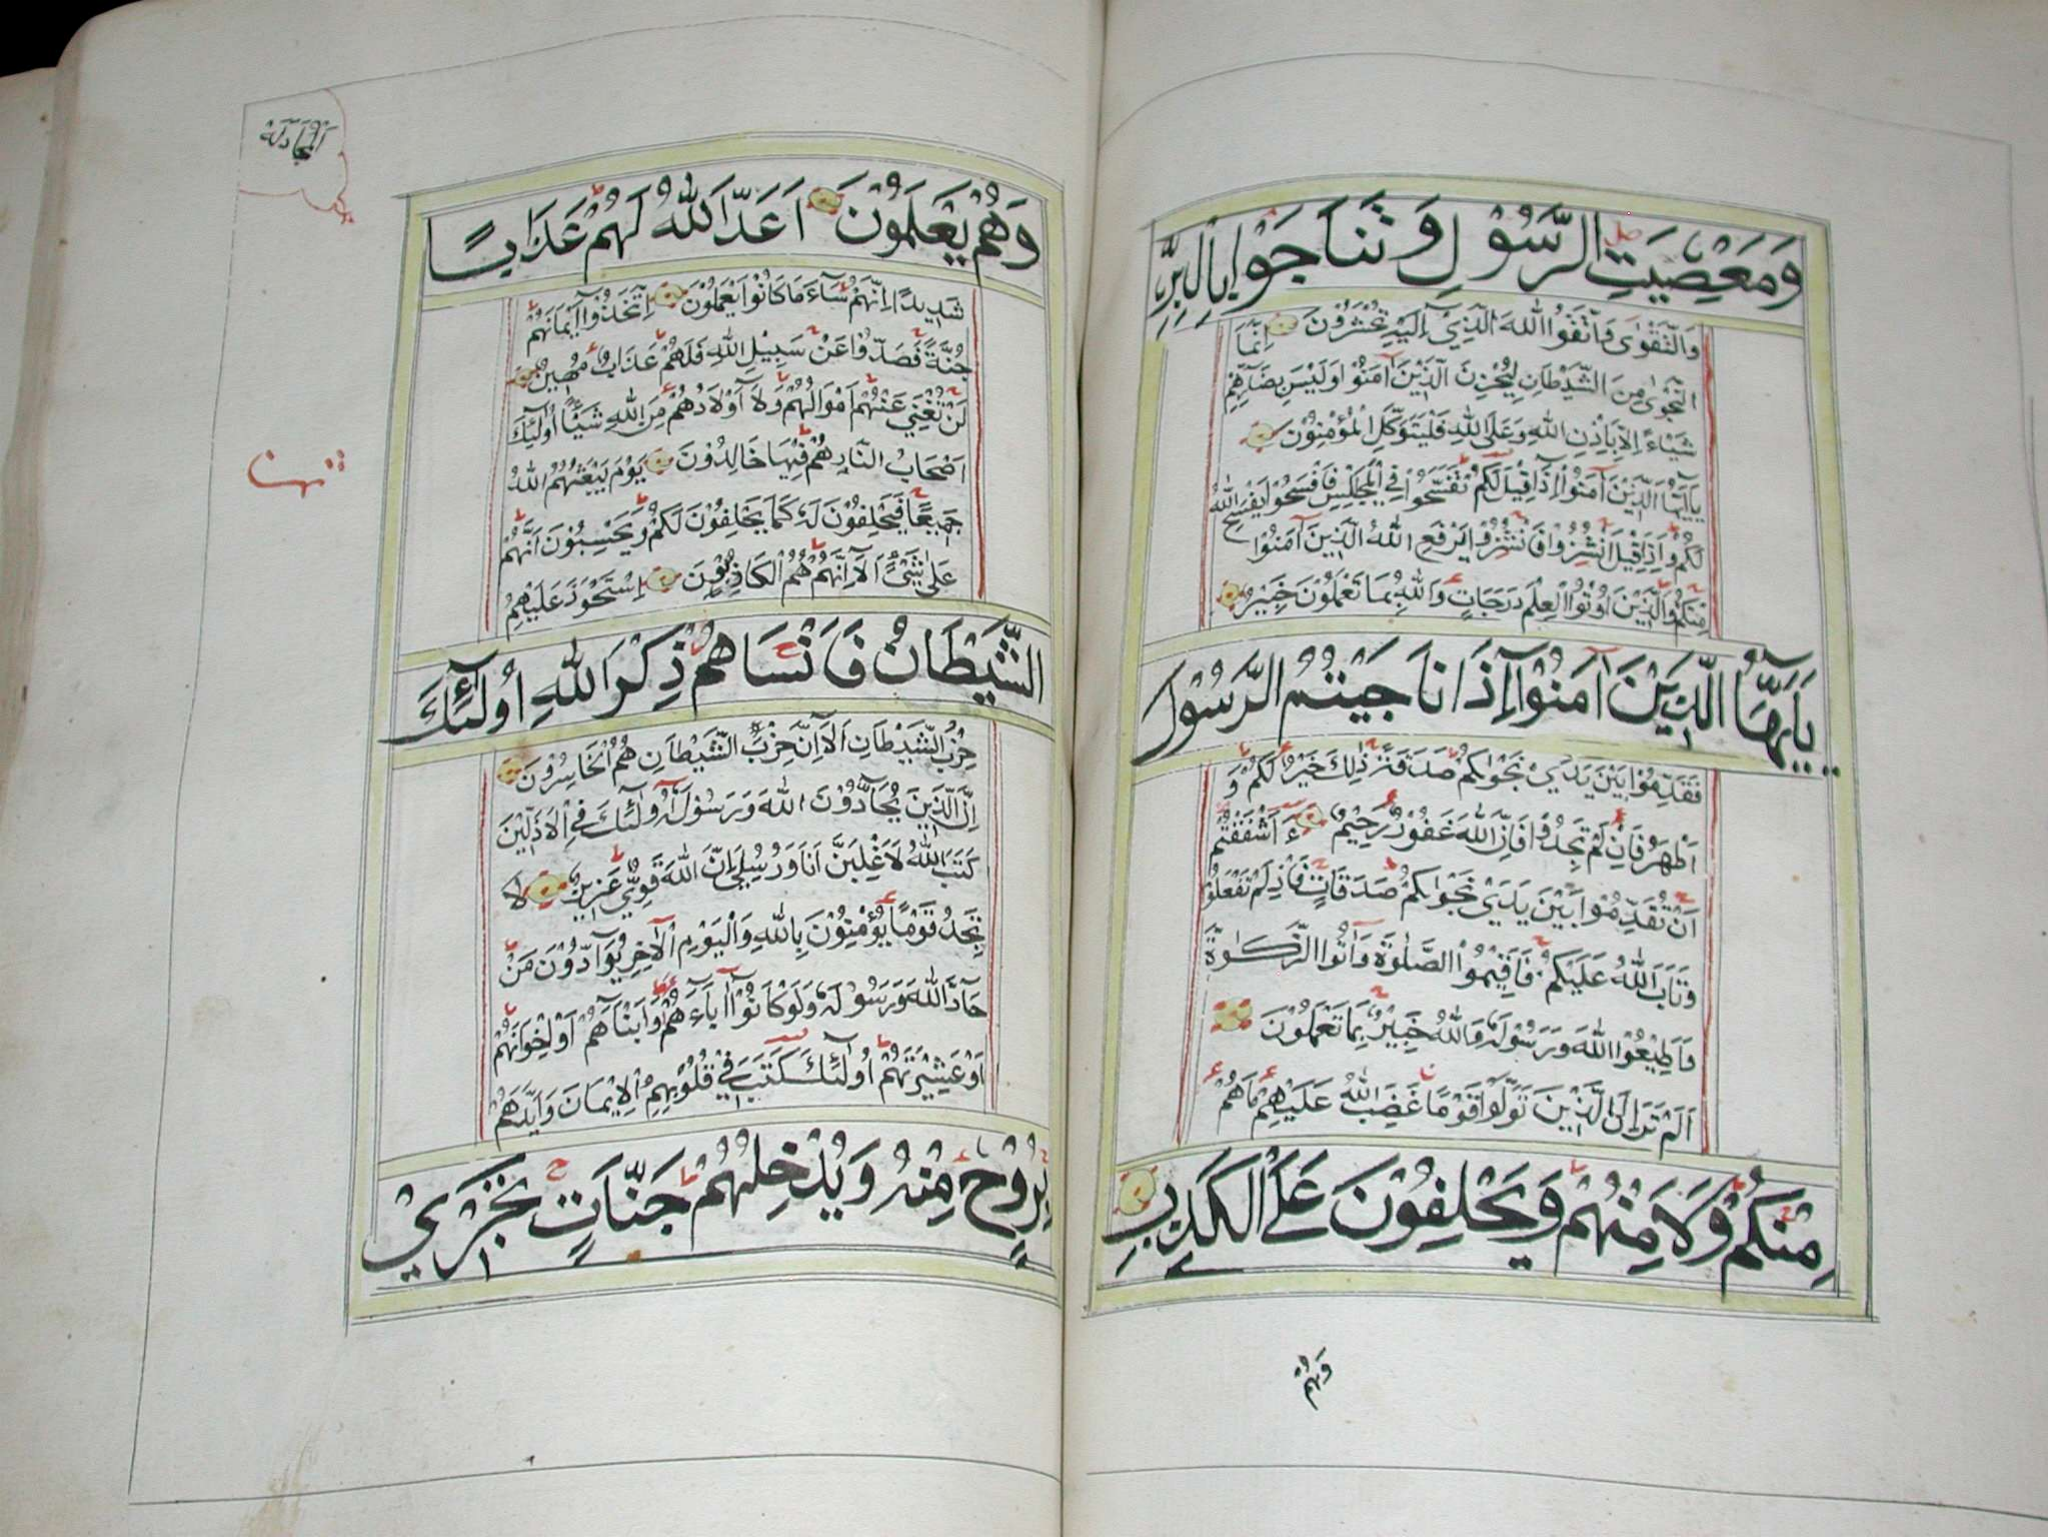 وَمَعْصِيَتِ الرَّسُوْلِ وَتَنَاجَوْا بِالْبِرِّ
وَالتَّقْوٰى وَاتَّقُوا اللّٰهَ الَّذِيْٓ اِلَيْهِ تُحْشَرُوْنَ اِنَّمَا
النَّجْوٰى مِنَ الشَّيْطَانِ لِيَحْزُنَ الَّذِيْنَ اٰمَنُوْا وَلَيْسَ بِضَآرِّهِمْ
شَيْـًٔا اِلَّا بِاِذْنِ اللّٰهِ وَعَلَى اللّٰهِ فَلْيَتَوَكَّلِ الْمُؤْمِنُوْنَ
يٰٓاَيُّهَا الَّذِيْنَ اٰمَنُوْٓا اِذَا قِيْلَ لَكُمْ تَفَسَّحُوْا فِي الْمَجٰلِسِ فَافْسَحُوْا يَفْسَحِ اللّٰهُ
لَكُمْ وَاِذَا قِيْلَ انْشُزُوْا فَانْشُزُوْا يَرْفَعِ اللّٰهُ الَّذِيْنَ اٰمَنُوْا
مِنْكُمْ وَالَّذِيْنَ اُوْتُوا الْعِلْمَ دَرَجَاتٍ وَاللّٰهُ بِمَا تَعْمَلُوْنَ خَبِيْرٌ
يٰٓاَيُّهَا الَّذِيْنَ اٰمَنُوْٓا اِذَا نَاجَيْتُمُ الرَّسُوْلَ
فَقَدِّمُوْا بَيْنَ يَدَيْ نَجْوٰىكُمْ صَدَقَةً ذٰلِكَ خَيْرٌ لَكُمْ وَ
اَطْهَرُ فَاِنْ لَمْ تَجِدُوْا فَاِنَّ اللّٰهَ غَفُوْرٌ رَحِيْمٌ ءَاَشْفَقْتُمْ
اَنْ تُقَدِّمُوْا بَيْنَ يَدَيْ نَجْوٰىكُمْ صَدَقَاتٍ فَاِذْ لَمْ تَفْعَلُوْا
وَتَابَ اللّٰهُ عَلَيْكُمْ فَاَقِيْمُوا الصَّلٰوةَ وَاٰتُوا الزَّكٰوةَ
وَاَطِيْعُوا اللّٰهَ وَرَسُوْلَهٗ وَاللّٰهُ خَبِيْرٌ بِمَا تَعْمَلُوْنَ
اَلَمْ تَرَ اِلَى الَّذِيْنَ تَوَلَّوْا قَوْمًا غَضِبَ اللّٰهُ عَلَيْهِمْ مَا هُمْ
مِنْكُمْ وَلَا مِنْهُمْ وَيَحْلِفُوْنَ عَلَى الْكَذِبِ
وَهُمْ
اَلْمُجَادَلَة
وَهُمْ يَعْلَمُوْنَ اَعَدَّ اللّٰهُ لَهُمْ عَذَابًا
شَدِيْدًا اِنَّهُمْ سَآءَ مَا كَانُوْا يَعْمَلُوْنَ اِتَّخَذُوْٓا اَيْمَانَهُمْ
جُنَّةً فَصَدُّوْا عَنْ سَبِيْلِ اللّٰهِ فَلَهُمْ عَذَابٌ مُهِيْنٌ
لَنْ تُغْنِيَ عَنْهُمْ اَمْوَالُهُمْ وَلَآ اَوْلَادُهُمْ مِنَ اللّٰهِ شَيْـًٔا اُولٰٓئِكَ
اَصْحَابُ النَّارِ هُمْ فِيْهَا خَالِدُوْنَ يَوْمَ يَبْعَثُهُمُ اللّٰهُ
جَمِيْعًا فَيَحْلِفُوْنَ لَهٗ كَمَا يَحْلِفُوْنَ لَكُمْ وَيَحْسَبُوْنَ اَنَّهُمْ
عَلٰى شَيْءٍ اَلَآ اِنَّهُمْ هُمُ الْكَاذِبُوْنَ اِسْتَحْوَذَ عَلَيْهِمُ
الشَّيْطَانُ فَاَنْسَاهُمْ ذِكْرَ اللّٰهِ اُولٰٓئِكَ
حِزْبُ الشَّيْطَانِ اَلَآ اِنَّ حِزْبَ الشَّيْطَانِ هُمُ الْخَاسِرُوْنَ
اِنَّ الَّذِيْنَ يُحَآدُّوْنَ اللّٰهَ وَرَسُوْلَهٗٓ اُولٰٓئِكَ فِي الْاَذَلِّيْنَ
كَتَبَ اللّٰهُ لَاَغْلِبَنَّ اَنَا وَرُسُلِيْ اِنَّ اللّٰهَ قَوِيٌّ عَزِيْزٌ لَا
تَجِدُ قَوْمًا يُؤْمِنُوْنَ بِاللّٰهِ وَالْيَوْمِ الْاٰخِرِ يُوَآدُّوْنَ مَنْ
حَآدَّ اللّٰهَ وَرَسُوْلَهٗ وَلَوْ كَانُوْٓا اٰبَآءَهُمْ اَوْ اَبْنَآءَهُمْ اَوْ اِخْوَانَهُمْ
اَوْ عَشِيْرَتَهُمْ اُولٰٓئِكَ كَتَبَ فِيْ قُلُوْبِهِمُ الْاِيْمَانَ وَاَيَّدَهُمْ
بِرُوْحٍ مِنْهُ وَيُدْخِلُهُمْ جَنَّاتٍ تَجْرِيْ